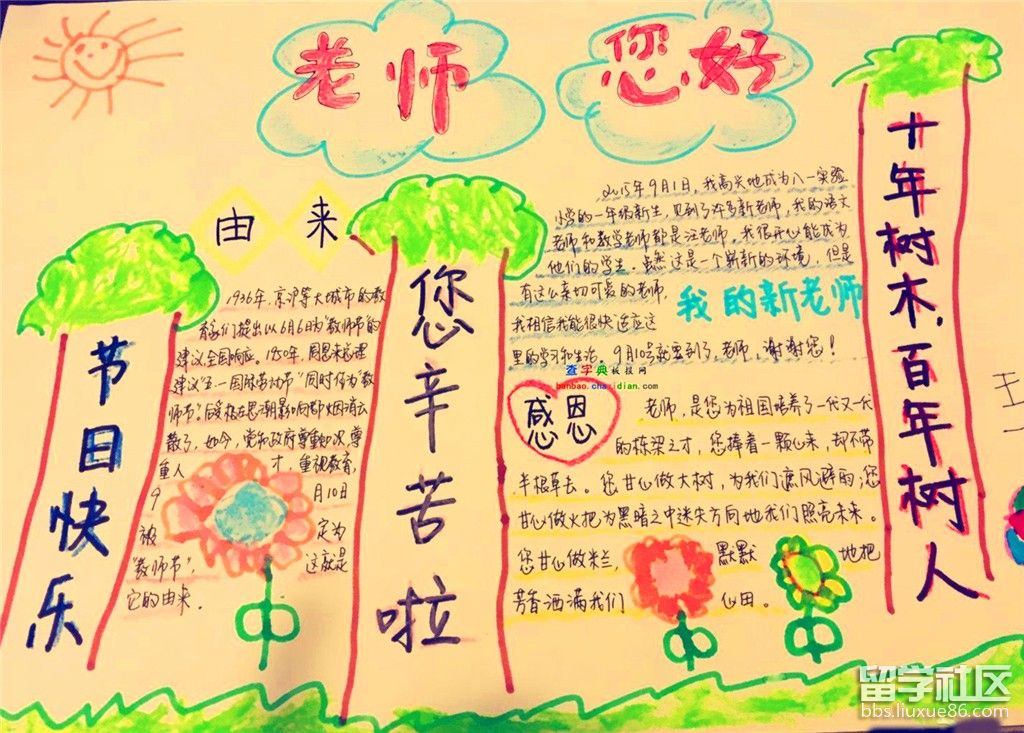 老师 您好
由来
1936年，京沪等大城市的教
育家们提出以6月6日为"教师节"的
建议，全国响应。1950年，周恩来总理
建议"五一国际劳动节"同时作为"教
师节"。
散了，如今，党和政府尊重知识，尊
重人才，重视教育，
9月10日
被定为
"教师节"，这就是
它的由来。
节日快乐
您辛苦啦
2015年9月1日，我高兴地成为八一实验
小学的一年级新生，见到了许多新老师，我的语文
老师和数学老师都是汪老师，我很开心能成为
他们的学生。虽然这是一个崭新的环境，但是
有这么亲切可爱的老师，
我相信我能很快适应这
里的学习和生活。9月10号就要到了，老师，谢谢您！
我的新老师
查字典板报网
banbao.chazidian.com
感恩
老师，是您为祖国培养了一代又一代
的栋梁之才，您捧着一颗心来，却不带
半根草去。您甘心做大树，为我们遮风避雨；您
甘心做火把为黑暗之中迷失方向地我们照亮未来。
您甘心做米兰，默默地把
芳香洒满我们心田。
十年树木，百年树人
留学社区
bbs.liuxue86.com